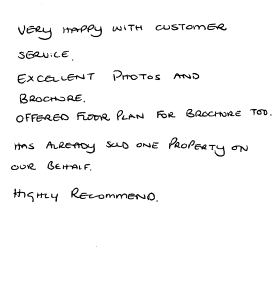 VERY HAPPY WITH CUSTOMER
SERVICE.
EXCELLENT PHOTOS AND
BROCHURE.
OFFERED FLOOR PLAN FOR BROCHURE TOO.
HAS ALREADY SOLD ONE PROPERTY ON
OUR BEHALF.
HIGHLY RECOMMEND.